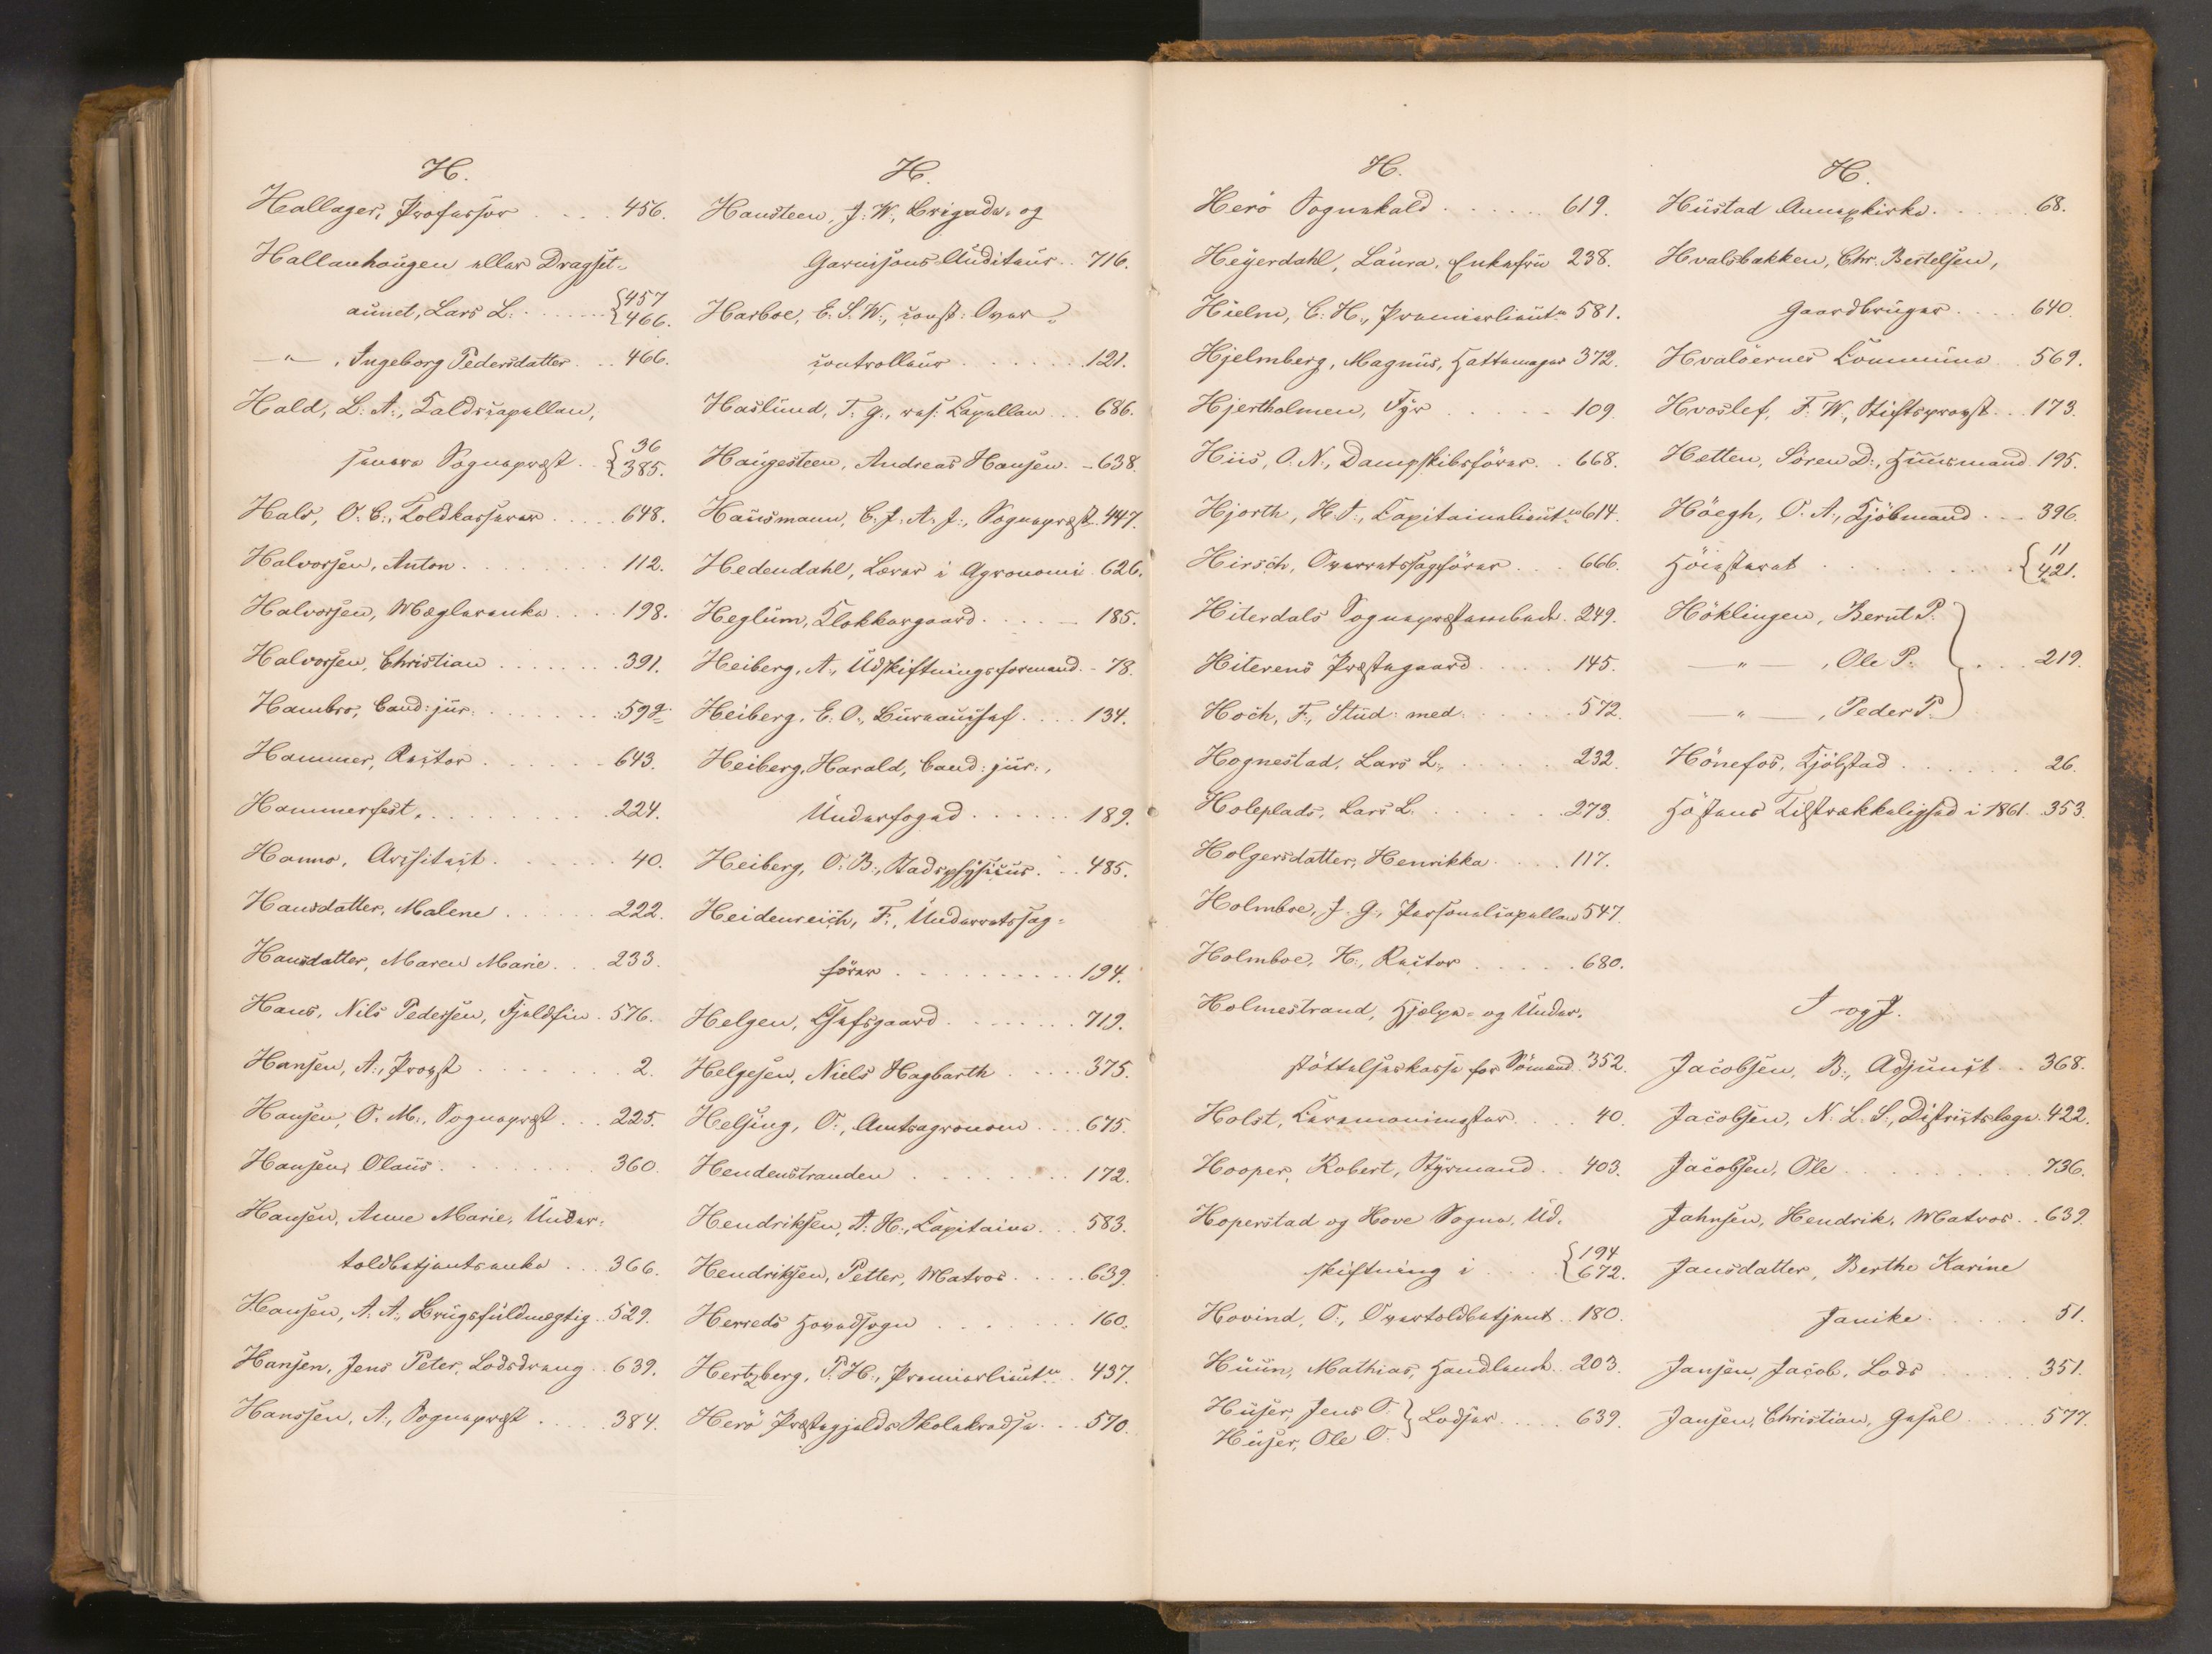 H.
Hallager, Professor . . . . 456.
Hallanhaugen eller Dragset-
aunet, Lars L. . . . . . { 457
466.
— „ —, Ingeborg Pedersdatter . . . 466.
Hald, L. A., Feldtcapellan,
senere Sognepræst . . { 36
385.
Hals, O. C., Toldkasserer . . . . 648.
Halvorsen, Anton . . . . . . . . 112.
Halvorsen, Mæglerenke . . . . 198.
Halvorsen, Christian . . . . . . . 391.
Hambro, Cand: jur. . . . . . . 592.
Hammer, Rector . . . . . . 643.
Hammerfest . . . . . . . . . 224.
Hanno, Architect . . . . . . 40.
Hansdatter, Malene . . . . . . 222.
Hansdatter, Maren Marie . . . 233.
Hans, Nils Pedersen, Fjeldfin . 576.
Hansen, A., Provst . . . . . . . 2.
Hansen, O. M., Sognepræst . . . 225.
Hansen, Olaus . . . . . . . . 360.
Hansen, Anne Marie, Under-
toldbetjentsenke . . . 366.
Hansen, A. A., Brugsfuldmægtig . . 529.
Hansen, Jens Peter, Lodsdreng . . 639.
Hanssen, A., Sognepræst . . . . 384.
H.
Hansteen, J. W., Brigade- og
Garnisons Auditeur . . 716.
Harboe, E. S. W., const: Over-
controlleur . . . . . . . 121.
Haslund, T. G., res. Capellan . . . 686.
Haugesteen, Andreas Hansen . - 638.
Hausmann, C. J. A. J., Sognepræst . 447.
Hedendahl, Lærer i Agronomi . 626.
Heglum, Klokkergaard . . . . - 185.
Heiberg, A., Udskiftningsformand . - 78.
Heiberg, E. O., Bureauchef . . . . 134.
Heiberg, Harald, Cand: jur.,
Underfoged . . . . . . 189.
Heiberg, O. B., Stadsphysicus . . . 485.
Heidenreich, F., Underretssag-
fører . . . . . . . . . . 194.
Helgen, Chefsgaard . . . . . . . . 719.
Helgesen, Niels Hagbarth . . . . . 375.
Helsing, O., Amtsagronom . . . . 675.
Hendenstranden . . . . . . . . 172.
Hendriksen, A. H., Capitaine . . . 583.
Hendriksen, Petter, Matros . . . . . 639.
Herreds Hovedsogn . . . . . . . 160.
Hertzberg, P. H., Premierlieutn . . 437.
Herö Præstegjelds Skolekredse . . . 570.
H.
Herö Sognekald . . . . . . . 619.
Heyerdahl, Laura, Enkefru 238.
Hielm, C. H., Premierlieutn 581.
Hjelmberg, Magnus, Hattemager 372.
Hjertholmen, Fyr . . . . . 109.
Hiis, O. N., Dampskibsförer . . 668.
Hjorth, H. A., Capitainelieutn 614.
Hirsch, Overretssagförer . . . 666.
Hiterdals Sognepræstembede . 249.
Hiterens Præstegaard . . . . . 145.
Hoch, F., Stud: med: . . . . . . 572.
Hognestad, Lars L., . . . . . . 232.
Holeplads, Lars L. . . . . . . . 273.
Holgersdatter, Henrikka . . . . 117.
Holmboe, J. G., Personelcapellan 547.
Holmboe, H., Rector . . . . . . 680.
Holmestrand, Hjelpe- og Under-
støttelseskasse for Sömænd . 352.
Holst, Ceremonimester . . . . 40.
Hooper, Robert, Styrmand . . 403.
Hoperstad og Hove Sogne, Ud-
skiftning i . . . . { 194
672.
Hovind, O., Overtoldbetjent . . 180.
Huun, Mathias, Handlende . 203.
Huser, Jens O. } Lodser . . . . 639.
Huser, Ole O.
H.
Hustad Annexkirke . . . . . . 68.
Hvalsbakken, Chr. Bertelsen,
Gaardbruger . . . . 640.
Hvaløernes Commune . . 569.
Hvoslef, F. W., Stiftsprovst . . . 173.
Hetten, Sören D., Huusmand . 195.
Höegh, O. A., Kjöbmand . . . 396.
Höiesteret . . . . . . . . . { 11
421.
Höklingen, Bernt P. }
— „ —, Ole P. . . . . 219.
— „ —, Peder P.
Hönefos, Kjöbstad . . . . . . 26.
Höstens Tilstrækkelighed i 1861 . 353.
I og J.
Jacobsen, B., Adjunct . . . 368.
Jacobsen, N. L. S., Districtslæge . 422.
Jacobsen, Ole . . . . . . . . . 736.
Jahnsen, Hendrik, Matros . . 639.
Jansdatter, Berthe Karine
Janike . . . . . . 51.
Jansen, Jacob, Lods . . . . . . 351.
Jansen, Christian, Gesel . . . . . 577.